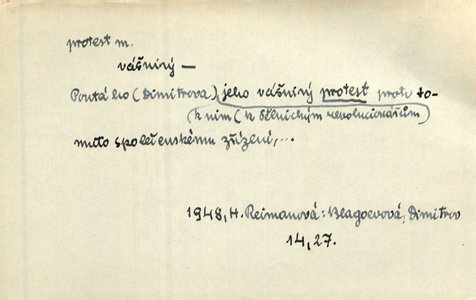 protest m.
vášnivý —
Poutá ho (Dimitrova) jeho vášnivý protest proti to-
k nim (k dělnickým revolucionářům)
muto společenskému zřízení,...
1948, H. Reimanová: Blagoevová, Dimitrov
14, 27.